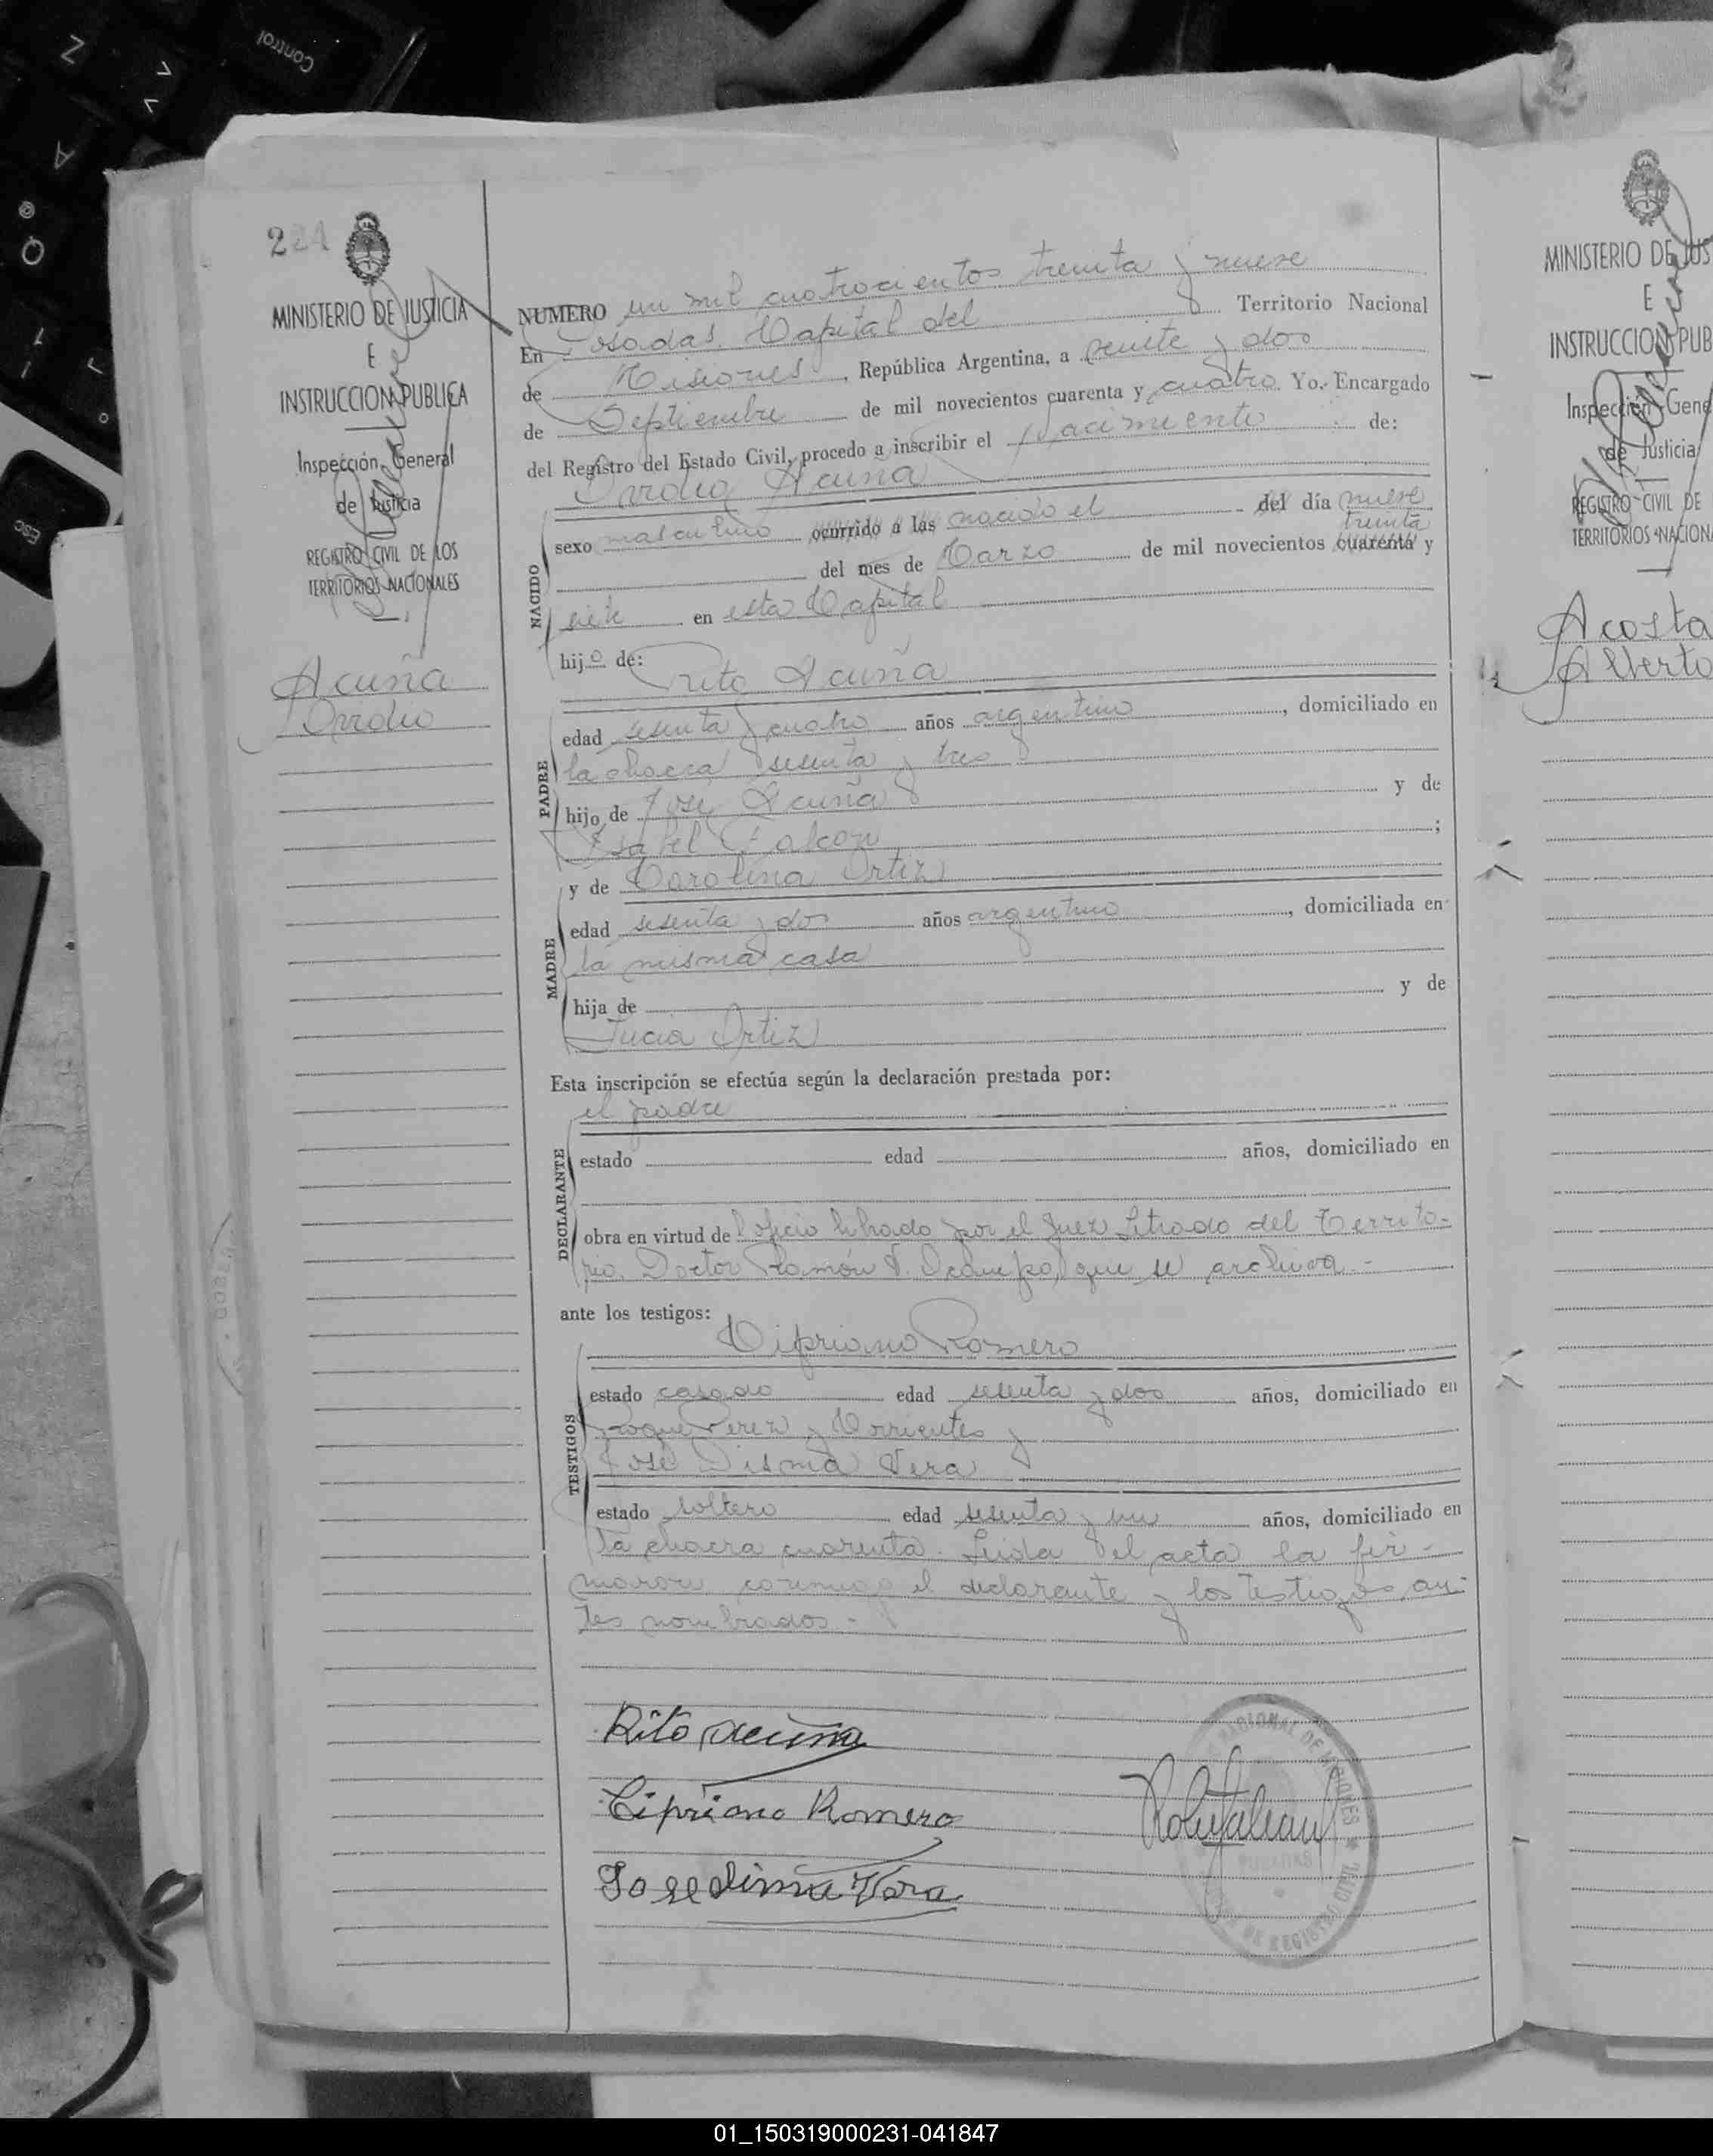 Control
Z
A
Q
Esc
224
MINISTERIO DE JUSTICIA
E
INSTRUCCION PUBLICA
Inspección General
de Justicia
REGISTRO CIVIL DE LOS
TERRITORIOS NACIONALES
Acuña
NUMERO un mil cuatrocientos treinta y nueve
En Posadas, Capital del Territorio Nacional
de Misiones, República Argentina, a veinte y dos
de Septiembre de mil novecientos cuarenta y cuatro. Yo, Encargado
del Registro del Estado Civil, procedo a inscribir el Nacimiento de:
Acuña
NACIDO
sexo masculino ocurrido a las nacido el del día nueve
treinta
del mes de Marzo de mil novecientos cuarenta y
siete en esta Capital
hijo de: Rito Acuña
PADRE
edad sesenta y cuatro años argentino, domiciliado en
la chacra sesenta y tres
hijo de José Acuña y de
Isabel Falcon;
y de Carolina Ortiz
MADRE
edad sesenta y dos años argentina, domiciliada en
la misma casa
hija de y de
Lucia Ortiz
Esta inscripción se efectúa según la declaración prestada por:
el padre
DECLARANTE
estado edad años, domiciliado en
obra en virtud del oficio librado por el Juez Letrado del Territo-
rio, Doctor Ramón V. Ocampo, que se archiva.-
ante los testigos:
Cipriano Romero
TESTIGOS
estado casado edad sesenta y dos años, domiciliado en
Roque Perez y Corrientes y
José Disma Vera
estado soltero edad sesenta y un años, domiciliado en
la chacra cuarenta. Leida el acta la fir-
maron conmigo el declarante y los testigos an-
tes nombrados.-
Rito Acuña
Cipriano Romero
Jose Disma Vera
MINISTERIO DE JUS
E
INSTRUCCION PUB
Inspección Gene
de Justicia
REGISTRO CIVIL DE
TERRITORIOS NACION
Acosta
Alberto
01_150319000231-041847